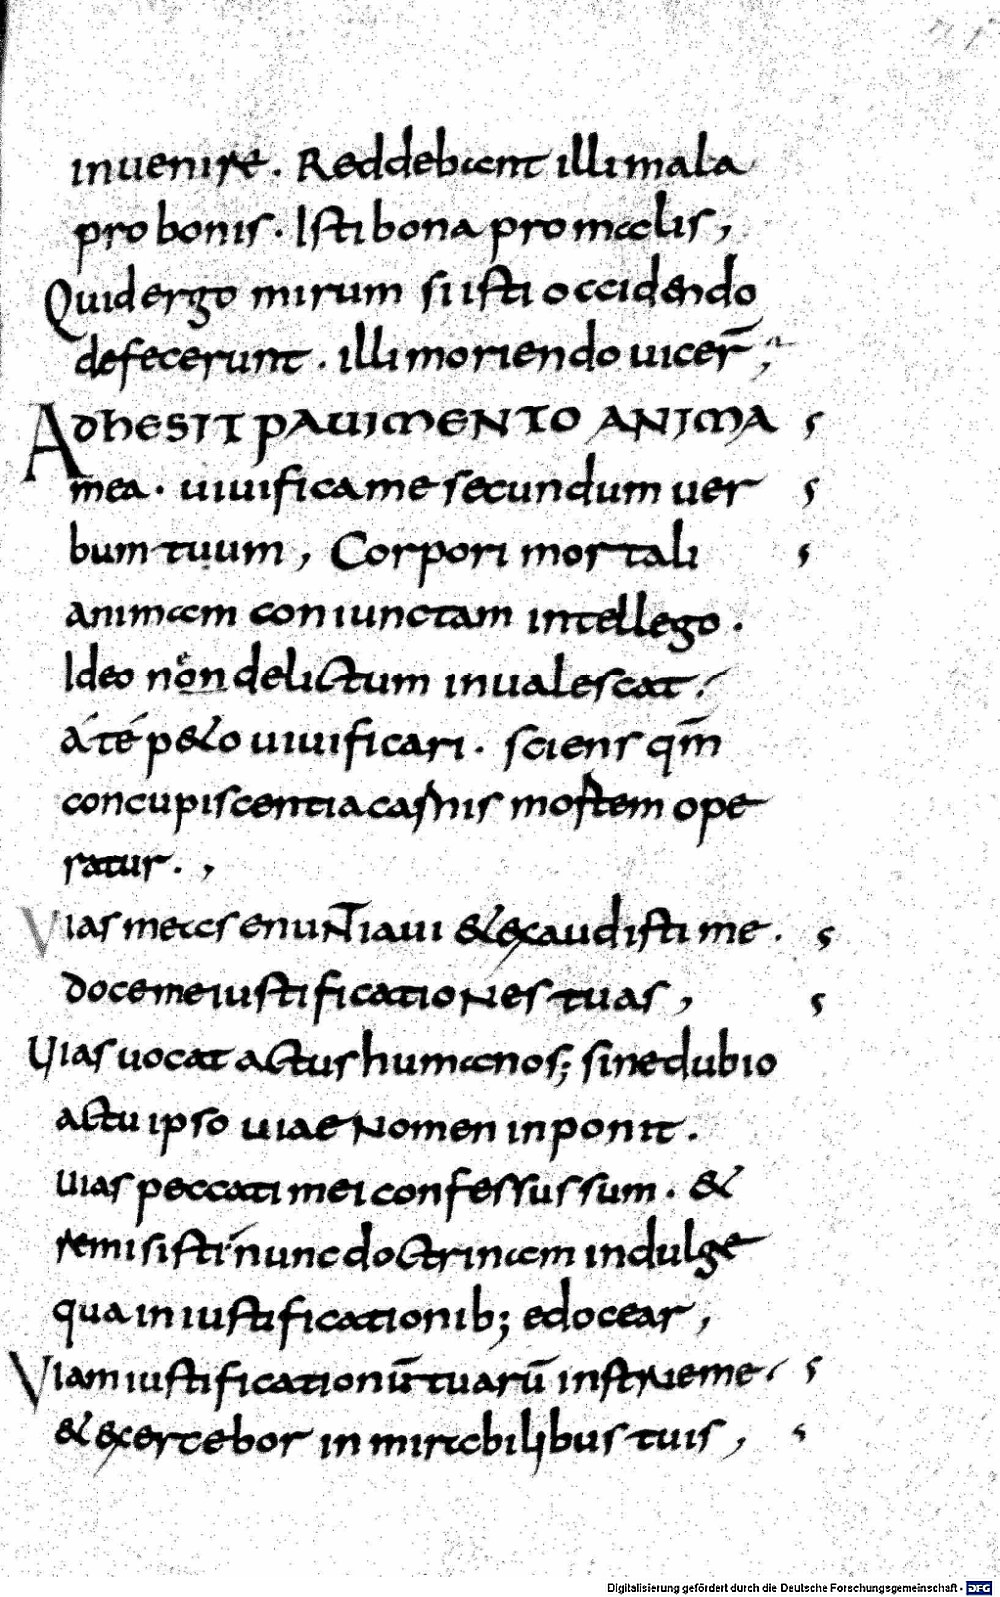 inuenire. Reddebant illi mala
pro bonis. Isti bona pro malis,
Quid ergo mirum si isti occidendo
defecerunt. illi moriendo uicer̄;
ADHESIT PAUIMENTO ANIMA
mea. uiuifica me secundum uer
bum tuum, Corpori mortali
animam coniunctam intellego.
Ideo non delictum inualescat.
a té peto uiuificari. sciens qm̄
concupiscentia carnis mortem ope
ratur.,
Vias meas enuNTiaui & exaudisti me.
doce me iustificatioNes tuas,
Uias uocat actus humanos; sine dubio
actu ipso uiae Nomen inponit.
uias peccati mei confessus sum. &
remisisti nunc doctrinam indulge
qua in iustificationib; edocear,
Viam iustificationū tuarū instrue me.
& exercebor in mirabilibus tuis,
Digitalisierung gefördert durch die Deutsche Forschungsgemeinschaft - DFG